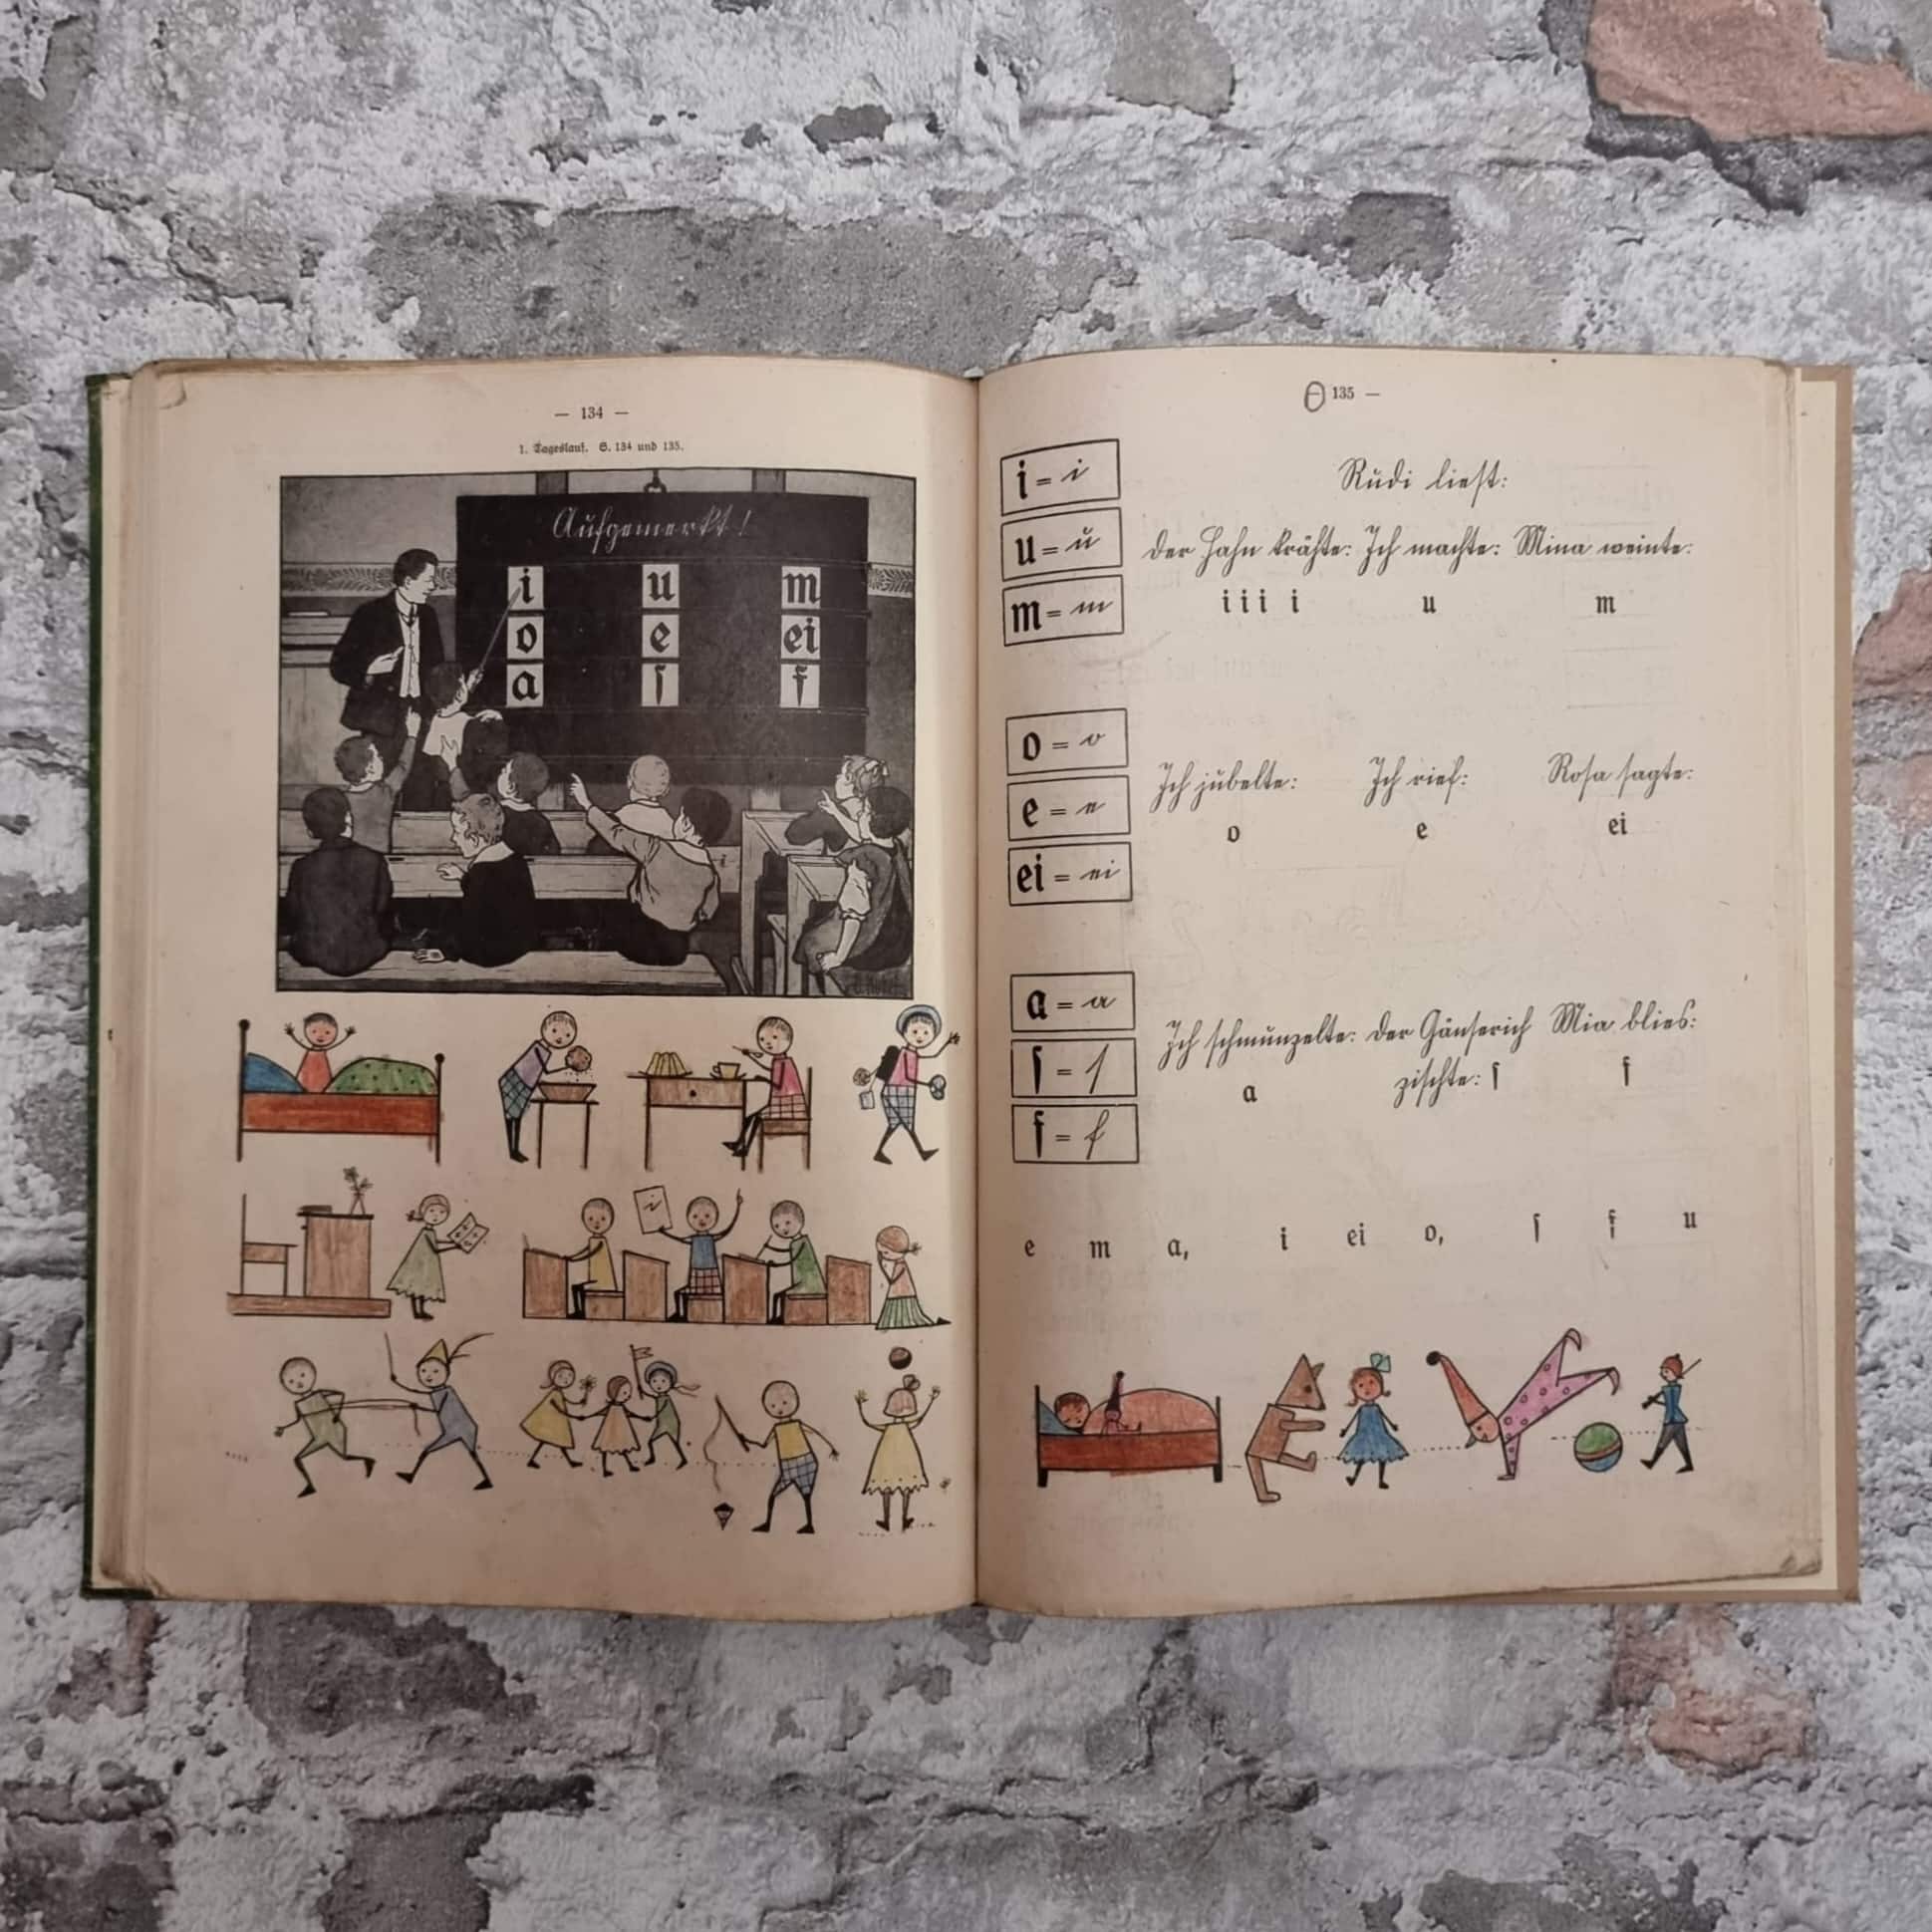 — 134 —
1. Tageslauf. S. 134 und 135.
Aufgemerkt!
i u m
o e ei
a ſ f
i
— 135 —
i = i
u = u
m = m
Rudi lieſt:
Der Hahn krähte: Ich machte: Mina weinte:
i i i i u m
o = o
e = e
ei = ei
Ich jubelte: Ich rief: Roſa ſagte:
o e ei
a = a
ſ = ſ
f = f
Ich ſchmunzelte: Der Gänſerich Mia blies:
a ziſchte: ſ f
e m a, i ei o, ſ f u